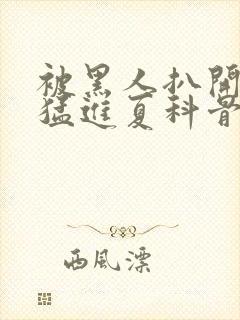 被黑人扒開
猛進夏科骨
西風漂